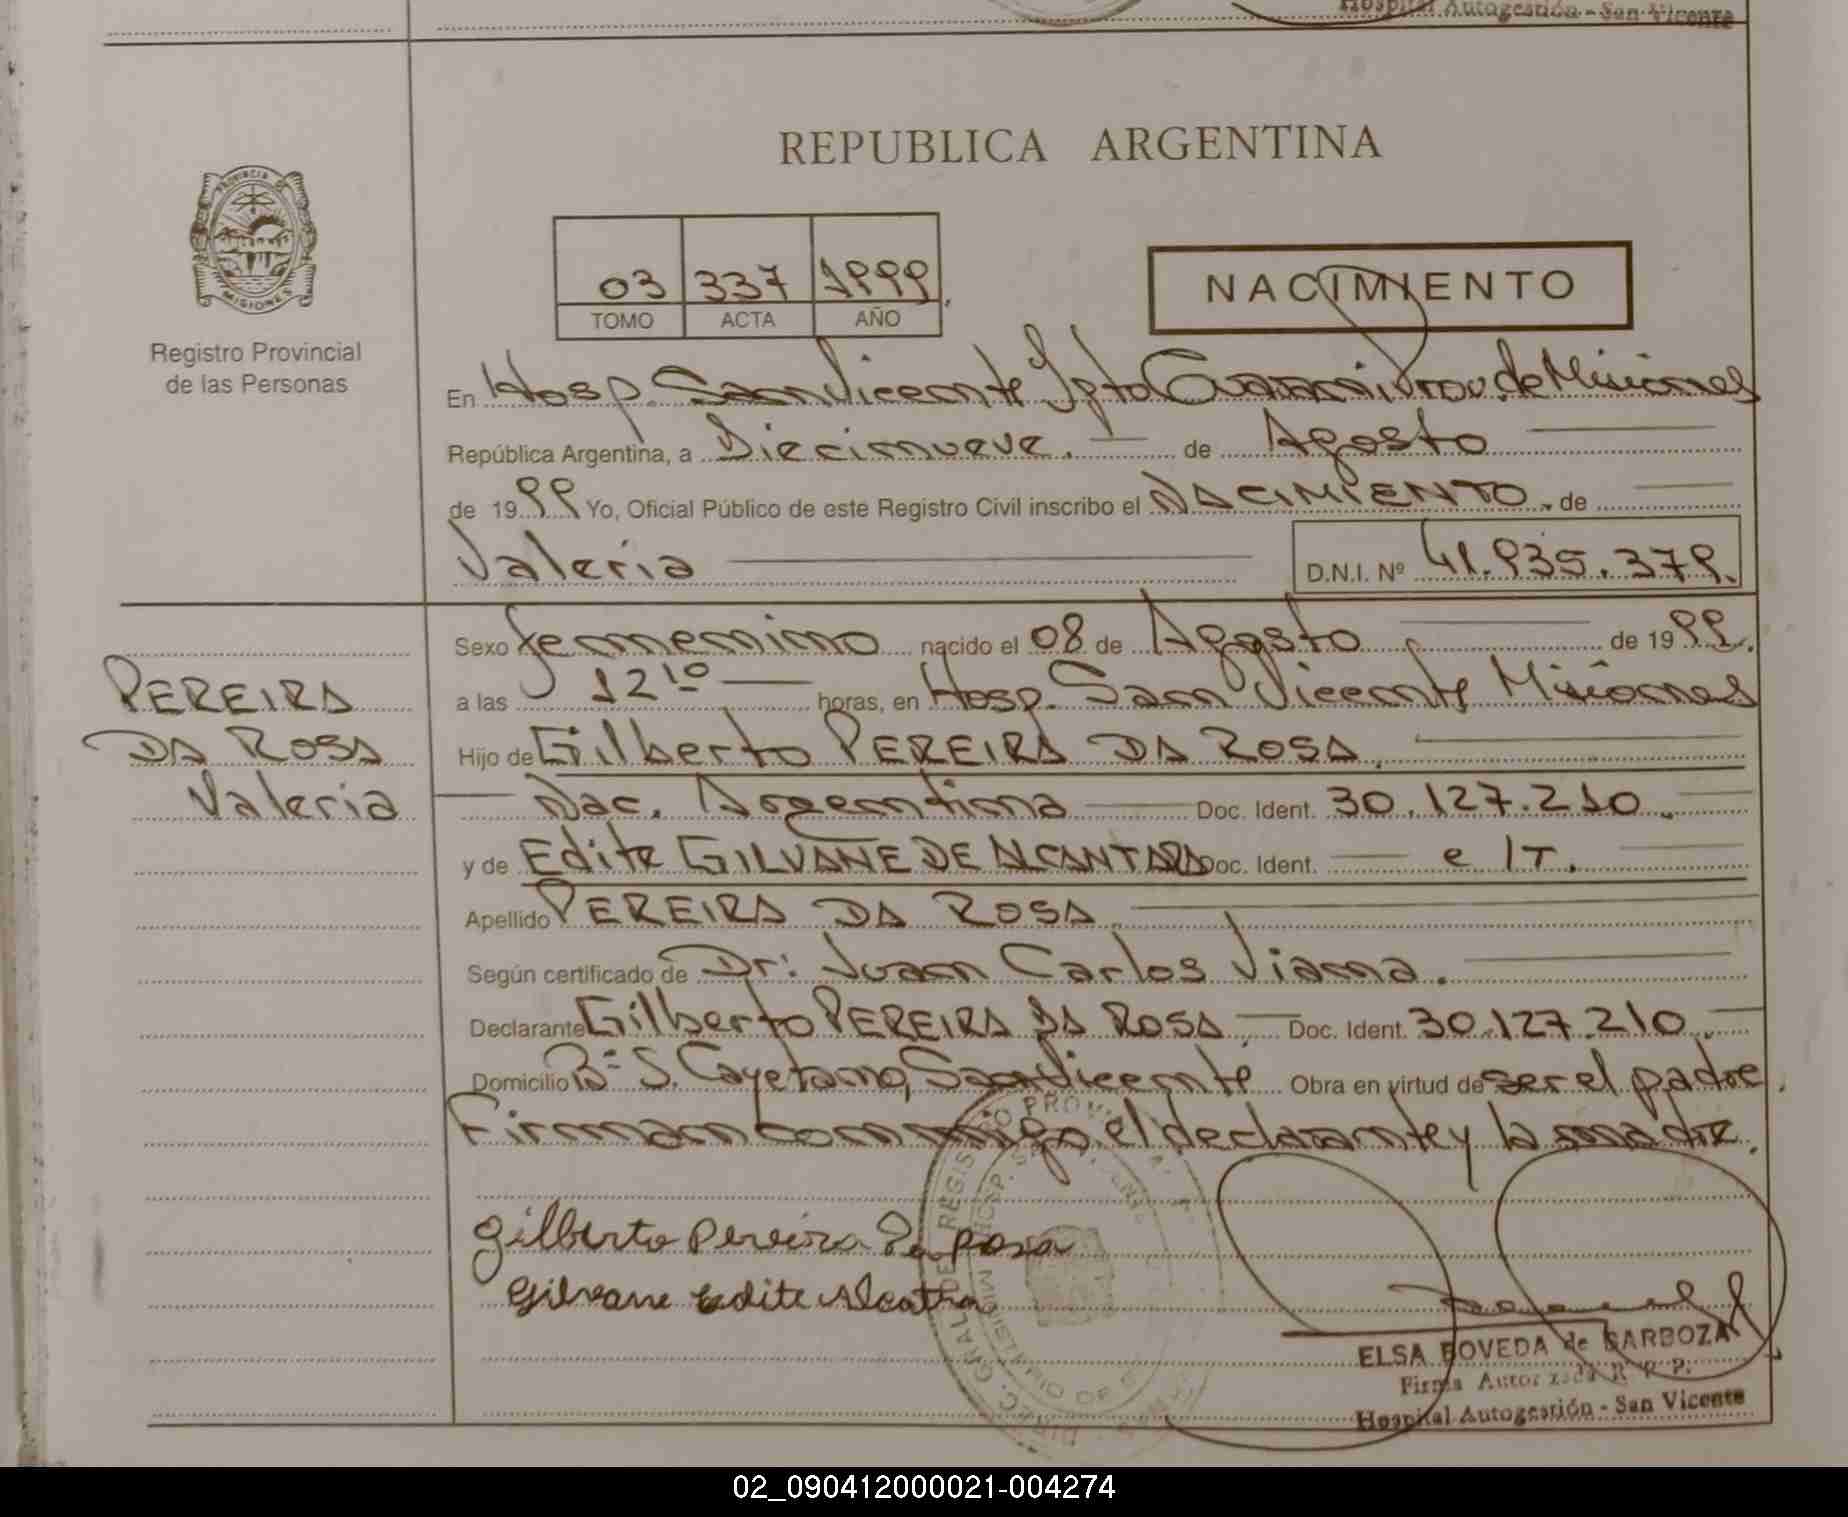 Hospital Autogestión - San Vicente
REPUBLICA ARGENTINA
PROVINCIA DE
MISIONES
Registro Provincial
de las Personas
03 337 1999
TOMO ACTA AÑO
NACIMIENTO
En Hosp. San Vicente Dpto Guarani Prov. de Misiones
República Argentina, a Diecinueve. de Agosto
de 1999 Yo, Oficial Público de este Registro Civil inscribo el NACIMIENTO. de
Valeria D.N.I. Nº 41.935.379.
Sexo femenino nacido el 08 de Agosto de 1999.
a las 12 10 horas, en Hosp. San Vicente Misiones
Hijo de Gilberto PEREIRA DA ROSA.
Nac. Argentina Doc. Ident. 30.127.210.
y de Edite GILVANE DE ALCANTARA Doc. Ident. e IT.
Apellido PEREIRA DA ROSA
Según certificado de Dr: Juan Carlos Viana.
Declarante Gilberto PEREIRA DA ROSA Doc. Ident. 30.127.210.
Domicilio Bº S. Cayetano, San Vicente Obra en virtud de ser el padre.
Firman conmigo el declarante y la madre.
PEREIRA
DA ROSA
Valeria
Gilberto Pereira Da Rosa
Gilvane Edite Alcatra
ELSA BOVEDA de BARBOZA
Firma Autorizada R. P. P.
Hospital Autogestión - San Vicente
02_090412000021-004274